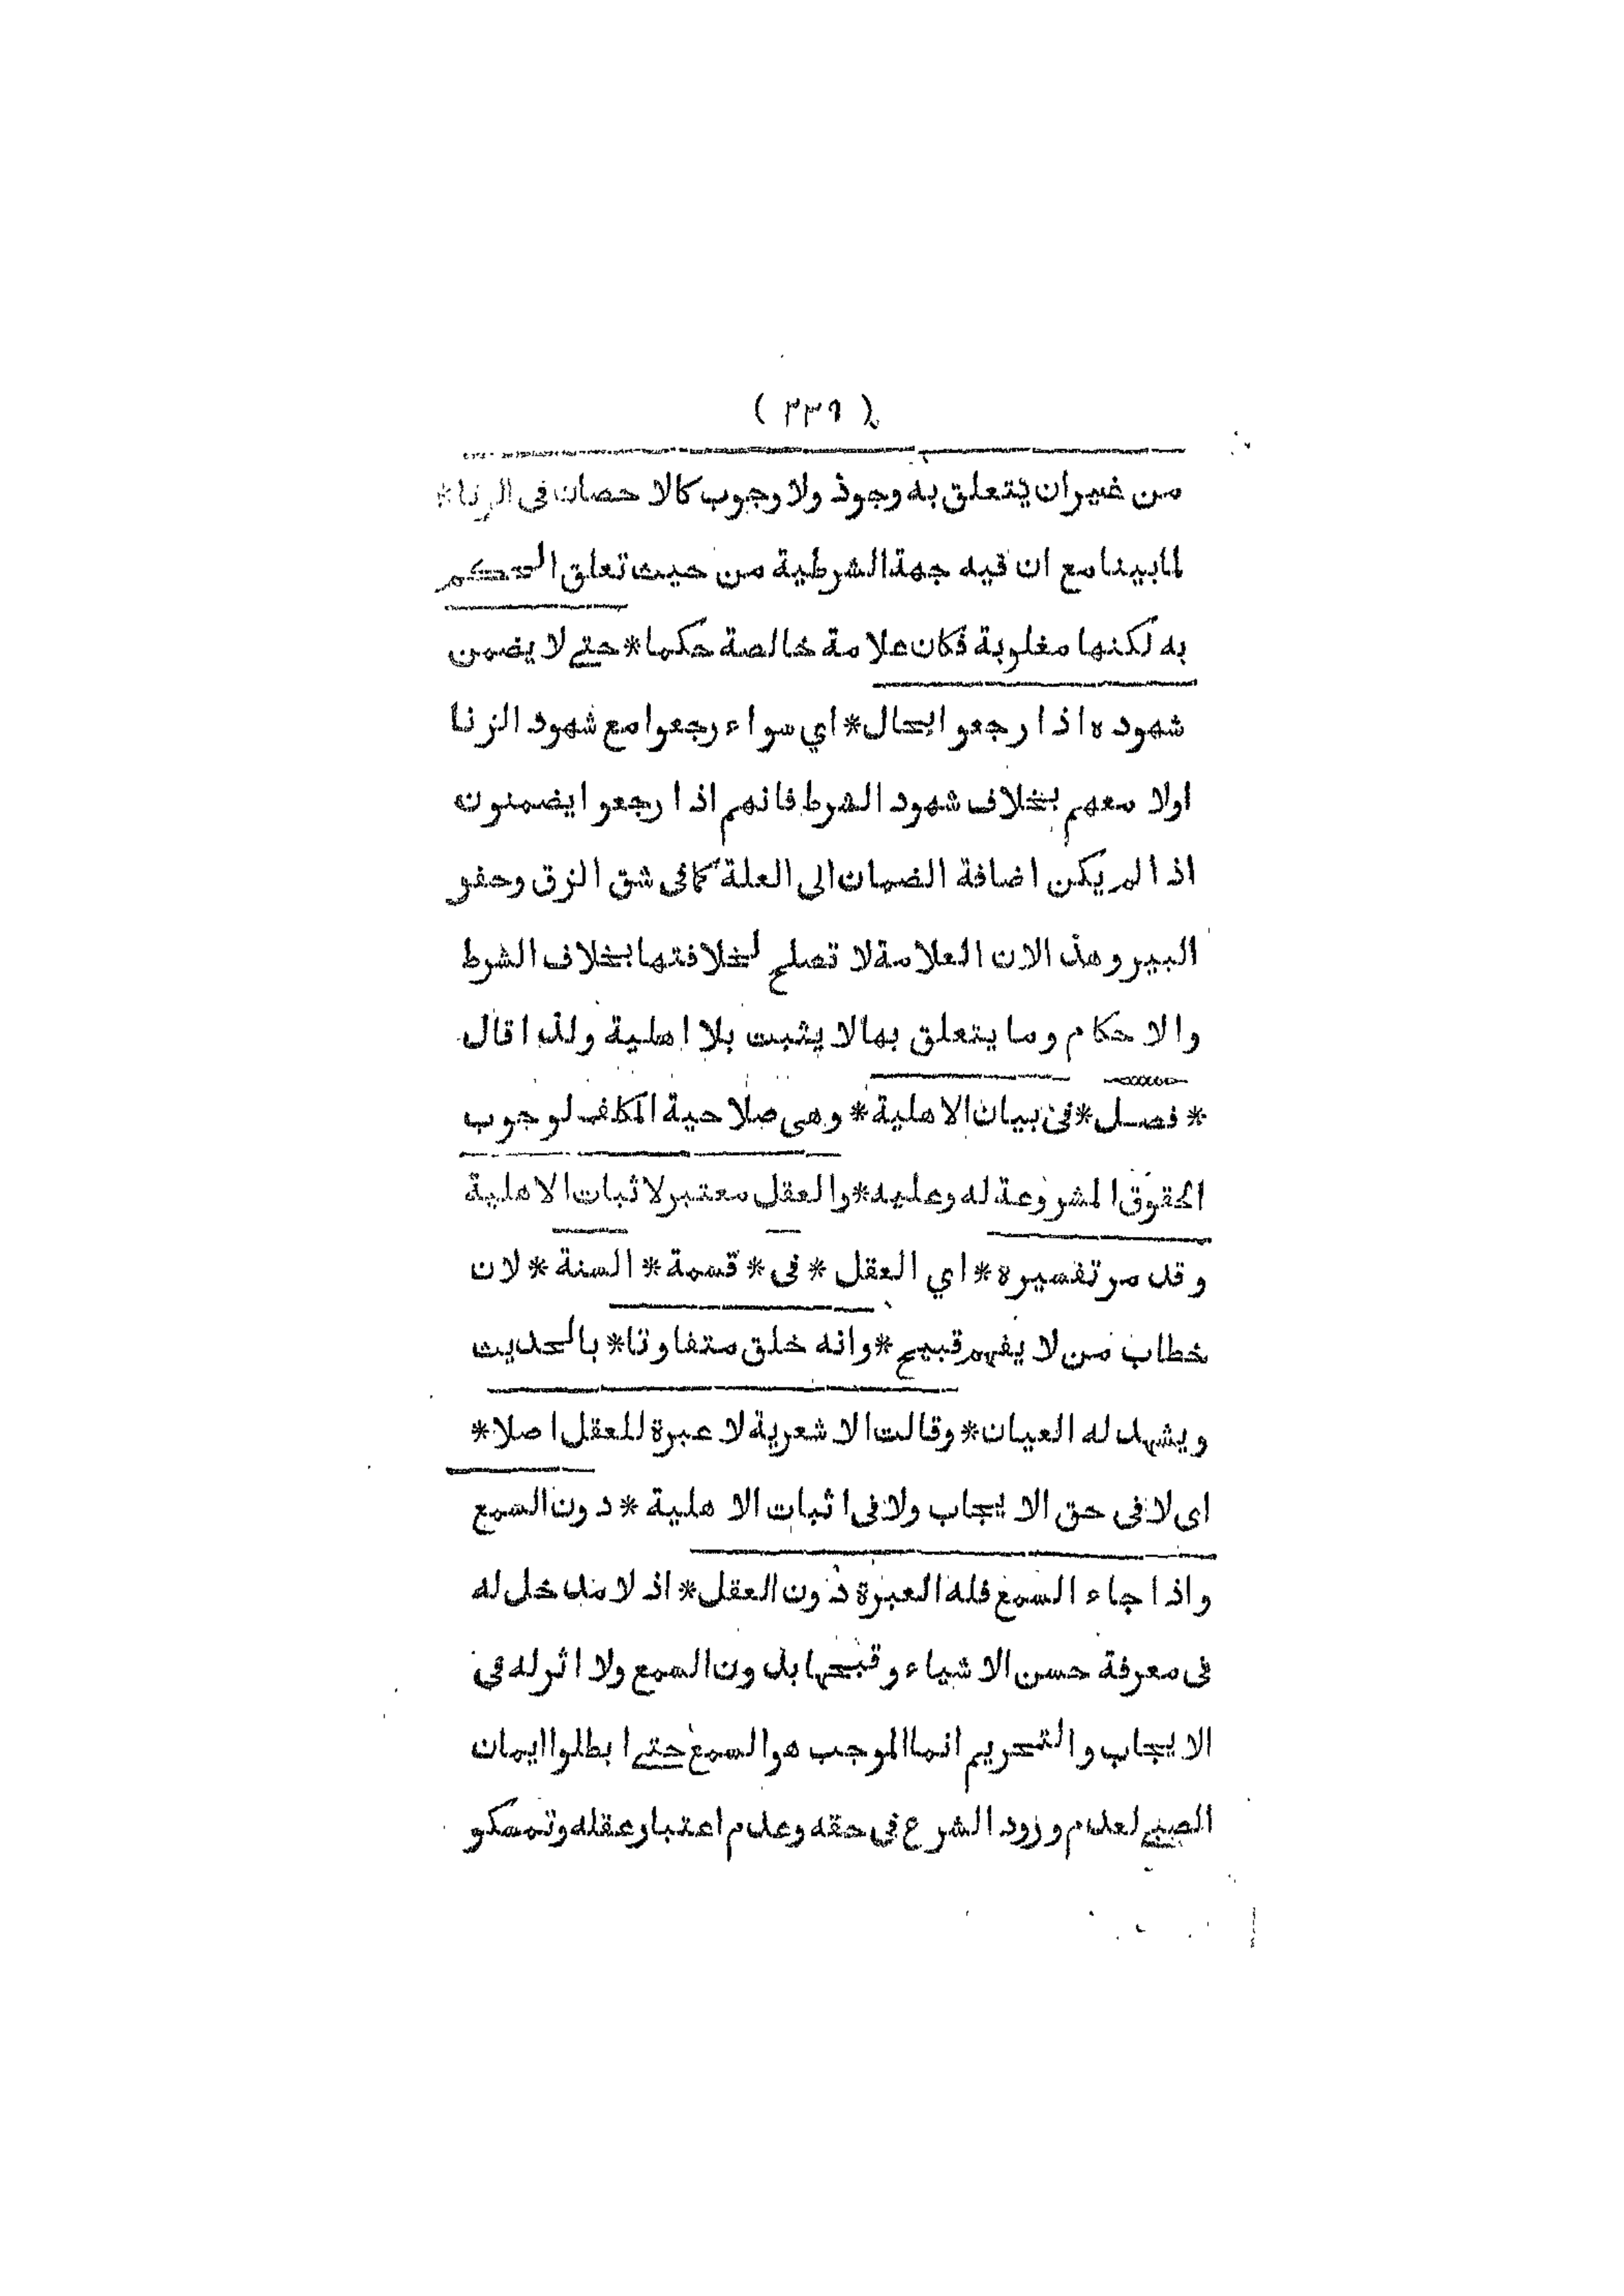 ( ٣٣٩ )
من غيران يتعلق به وجود ولا وجوب كالاحصان فى الزنا*
لمابينا مع ان فيه جهة الشرطية من حيث تعلق الحكم
به لكنها مغلوبة فكان علامة خالصة حكما * حتى لا يضمن
شهوده اذا رجعوا بحال * اي سواء رجعوا مع شهود الزنا
اولا معهم بخلاف شهود الشرط فانهم اذا رجعوا يضمنون
اذا لم يكن اضافة الضمان الى العلة كما فى شق الزق وحفر
البير وهذا لان العلامة لا تصلح لخلافتها بخلاف الشرط
والاحكام وما يتعلق بها لا يثبت بلا اهلية ولذا قال
* فصل * فى بيان الاهلية * وهى صلاحية المكلف لوجوب
الحقوق المشروعة له وعليه * والعقل معتبر لاثبات الاهلية
وقد مر تفسيره * اي العقل * فى * قسمة * السنة * لان
خطاب من لا يفهم قبيح * وانه خلق متفاوتا * بالحديث
ويشهد له العيان * وقالت الاشعرية لا عبرة للعقل اصلا *
اى لا فى حق الايجاب ولا فى اثبات الاهلية * دون السمع
واذا جاء السمع فله العبرة دون العقل * اذ لا مدخل له
فى معرفة حسن الاشياء وقبحها بدون السمع ولا اثر له فى
الايجاب والتحريم انما الموجب هو السمع حتى ابطلوا ايمان
الصبى لعدم ورود الشرع فى حقه وعدم اعتبار عقله وتمسكو